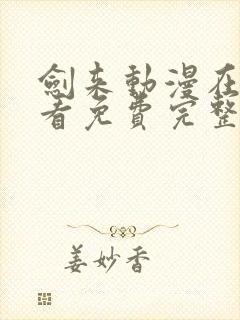 劍来動漫在
看免費完整
姜妙香